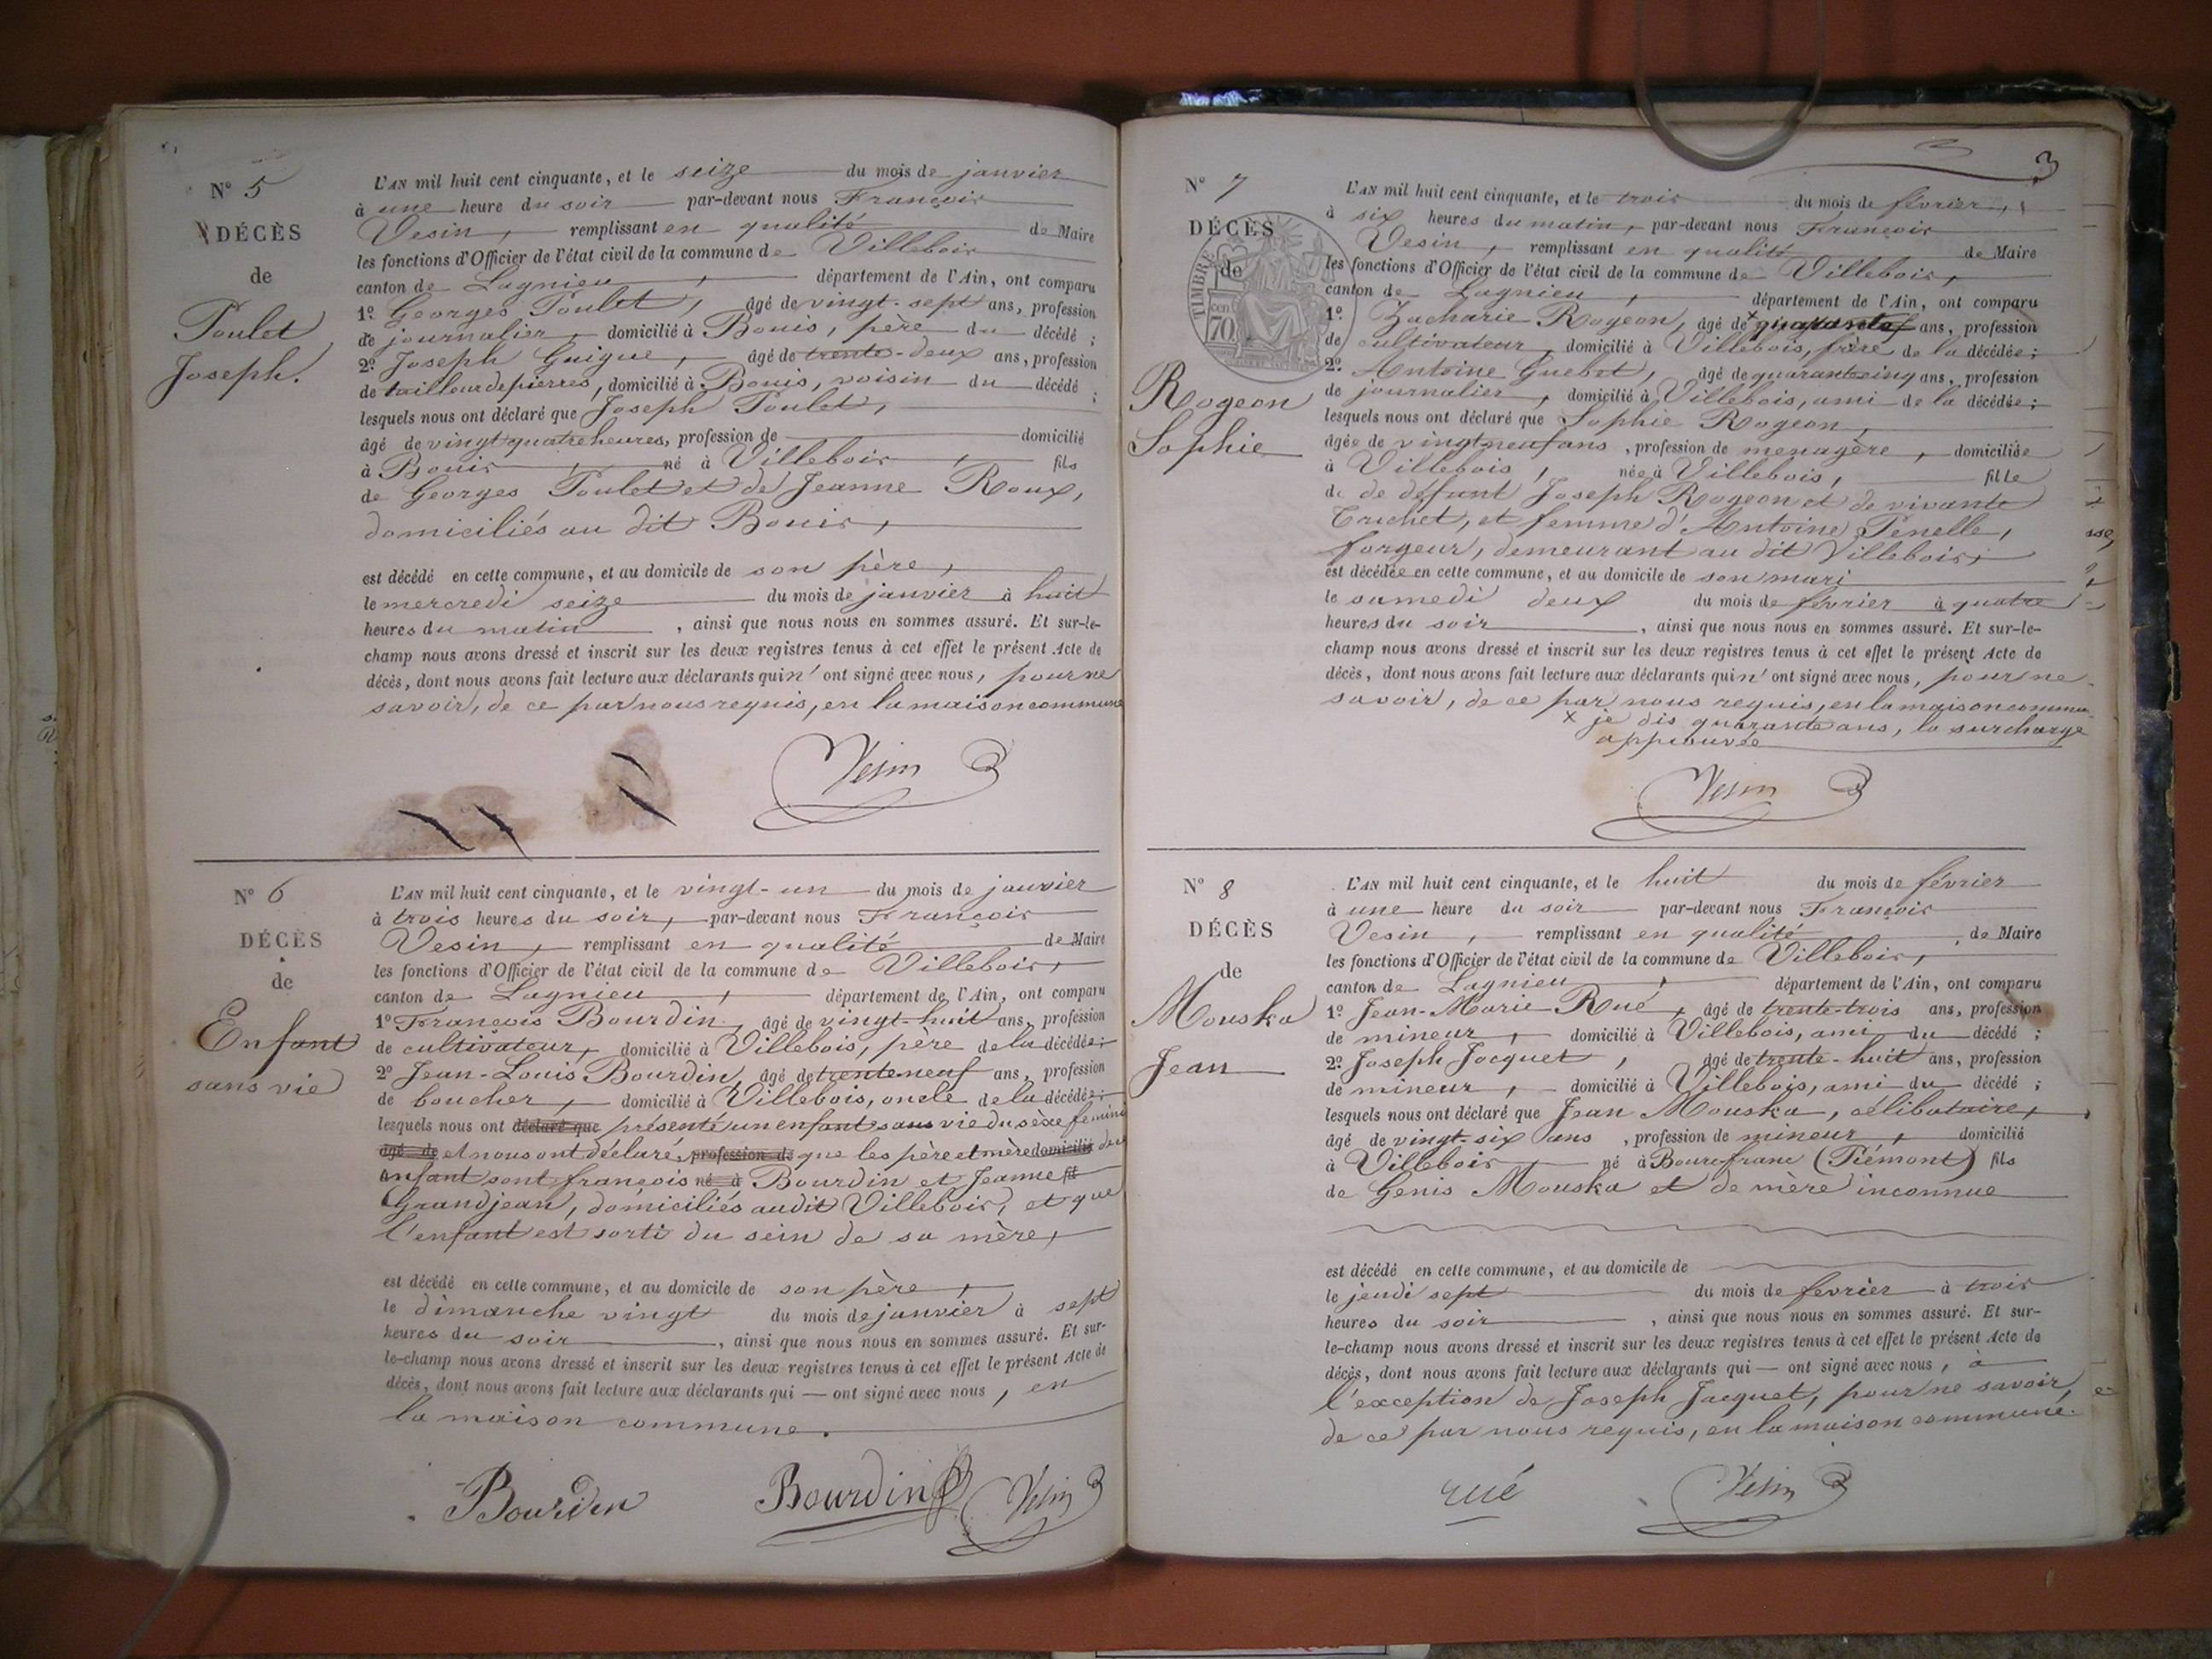 N° 5
DÉCÈS
de
Poulet
Joseph.
L'AN mil huit cent cinquante, et le seize du mois de janvier
à une heure du soir par-devant nous François
Vesin, remplissant en qualité de Maire
les fonctions d'Officier de l'état civil de la commune de Villebois
canton de Lagnieu, département de l'Ain, ont comparu
1° Georges Poulet, âgé de vingt-sept ans, profession
de journalier, domicilié à Bouis, père du décédé;
2° Joseph Guigue, âgé de trente-deux ans, profession
de tailleur de pierres, domicilié à Bouis, voisin du décédé;
lesquels nous ont déclaré que Joseph Poulet,
âgé de vingt quatre heures, profession de domicilié
à Bouis, né à Villebois, fils
de Georges Poulet et de Jeanne Roux,
domiciliés au dit Bouis,
est décédé en cette commune, et au domicile de son père,
le mercredi seize du mois de janvier à huit
heures du matin, ainsi que nous nous en sommes assuré. Et sur-le-
champ nous avons dressé et inscrit sur les deux registres tenus à cet effet le présent Acte de
décès, dont nous avons fait lecture aux déclarants qui n'ont signé avec nous, pour ne
savoir, de ce par nous requis, en la maison commune
Vesin
N° 6
DÉCÈS
de
Enfant
sans vie
L'AN mil huit cent cinquante, et le vingt-un du mois de janvier
à trois heures du soir, par-devant nous François
Vesin, remplissant en qualité de Maire
les fonctions d'Officier de l'état civil de la commune de Villebois,
canton de Lagnieu, département de l'Ain, ont comparu
1° François Bourdin, âgé de vingt-huit ans, profession
de cultivateur, domicilié à Villebois, père de la décédée;
2° Jean-Louis Bourdin, âgé de trente neuf ans, profession
de boucher, domicilié à Villebois, oncle de la décédée;
lesquels nous ont déclaré que présenté un enfant sans vie du sexe féminin
âgé de et nous ont déclaré, profession de que les père et mère domicilié de cet
enfant sont françois né à Bourdin et Jeanne fil
Grandjean, domiciliés audit Villebois, et que
l'enfant est sorti du sein de sa mère,
est décédé en cette commune, et au domicile de son père,
le dimanche vingt du mois de janvier à sept
heures du soir, ainsi que nous nous en sommes assuré. Et sur-
le-champ nous avons dressé et inscrit sur les deux registres tenus à cet effet le présent Acte de
décès, dont nous avons fait lecture aux déclarants qui — ont signé avec nous, en
la maison commune.
Bourdin Bourdin Vesin
3
N° 7
DÉCÈS
de
TIMBRE
70 cent
Rogeon
Sophie
L'AN mil huit cent cinquante, et le trois du mois de février,
à six heures du matin, par-devant nous François
Vesin, remplissant en qualité de Maire
les fonctions d'Officier de l'état civil de la commune de Villebois,
canton de Lagnieu, département de l'Ain, ont comparu
1° Zacharie Rogeon, âgé de x quarante ans, profession
de cultivateur, domicilié à Villebois, frère de la décédée;
2° Antoine Guebet, âgé de quarante cinq ans, profession
de journalier, domicilié à Villebois, ami de la décédée;
lesquels nous ont déclaré que Sophie Rogeon,
âgée de vingt neuf ans, profession de menagère, domiciliée
à Villebois, née à Villebois, fille
de de défunt Joseph Rogeon et de vivante
Truchet, et femme d'Antoine Penelle,
forgeur, demeurant au dit Villebois;
est décédée en cette commune, et au domicile de son mari
le samedi deux du mois de février à quatre
heures du soir, ainsi que nous nous en sommes assuré. Et sur-le-
champ nous avons dressé et inscrit sur les deux registres tenus à cet effet le présent Acte de
décès, dont nous avons fait lecture aux déclarants qui n'ont signé avec nous, pour ne
savoir, de ce par nous requis, en la maison commu-
x je dis quarante ans, la surcharge
approuvée
Vesin
N° 8
DÉCÈS
de
Mouska
Jean
L'AN mil huit cent cinquante, et le huit du mois de février
à une heure du soir par-devant nous François
Vesin, remplissant en qualité, de Maire
les fonctions d'Officier de l'état civil de la commune de Villebois,
canton de Lagnieu, département de l'Ain, ont comparu
1° Jean-Marie Rué, âgé de trente-trois ans, profession
de mineur, domicilié à Villebois, ami du décédé;
2° Joseph Jacquet, âgé de trente-huit ans, profession
de mineur, domicilié à Villebois, ami du décédé;
lesquels nous ont déclaré que Jean Mouska, célibataire,
âgé de vingt-six ans, profession de mineur, domicilié
à Villebois, né à Bourofranc (Piémont) fils
de Genis Mouska et de mère inconnue
est décédé en cette commune, et au domicile de
le jeudi sept du mois de fevrier à trois
heures du soir, ainsi que nous nous en sommes assuré. Et sur-
le-champ nous avons dressé et inscrit sur les deux registres tenus à cet effet le présent Acte de
décès, dont nous avons fait lecture aux déclarants qui — ont signé avec nous, à
l'exception de Joseph Jacquet, pour ne savoir,
de ce par nous requis, en la maison commune.
rué Vesin